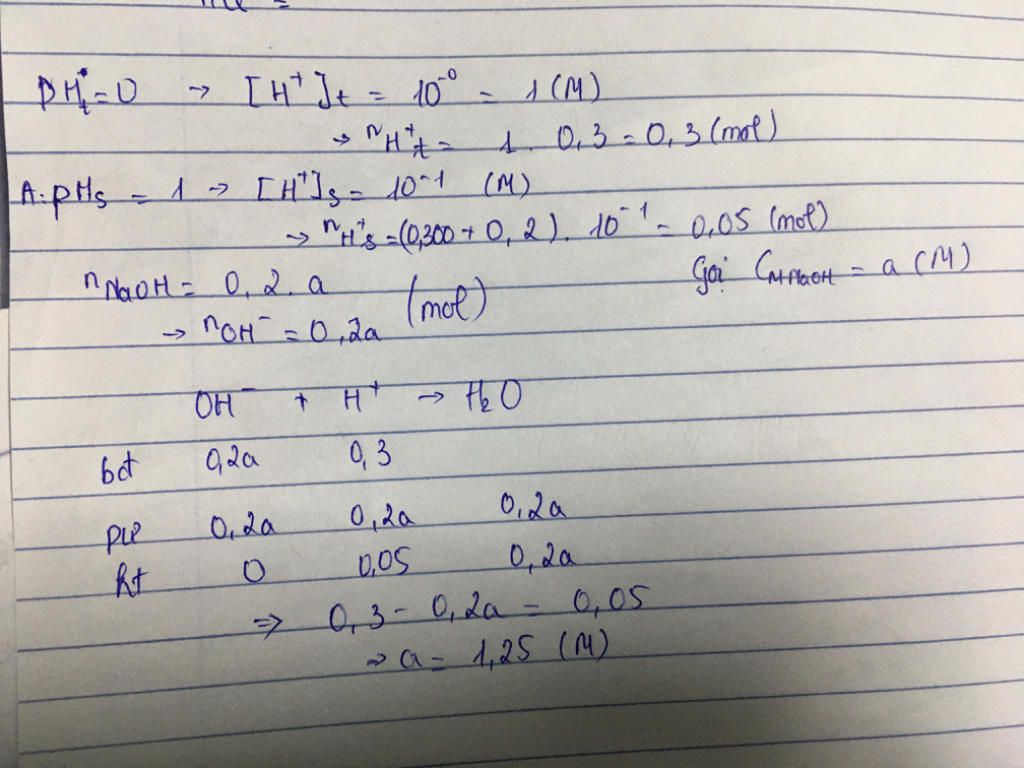 pHₜ = 0 → [H⁺]ₜ = 10⁻⁰ = 1 (M)
→ nH⁺ₜ = 1 . 0,3 = 0,3 (mol)
A: pHₛ = 1 → [H⁺]ₛ = 10⁻¹ (M)
→ nH⁺ₛ = (0,300 + 0,2) . 10⁻¹ = 0,05 (mol)
nNaOH = 0,2 . a (mol) Gọi CM NaOH = a (M)
→ nOH⁻ = 0,2a
OH⁻ + H⁺ → H₂O
bđ 0,2a 0,3
pứ 0,2a 0,2a 0,2a
kt 0 0,05 0,2a
⇒ 0,3 - 0,2a = 0,05
→ a = 1,25 (M)